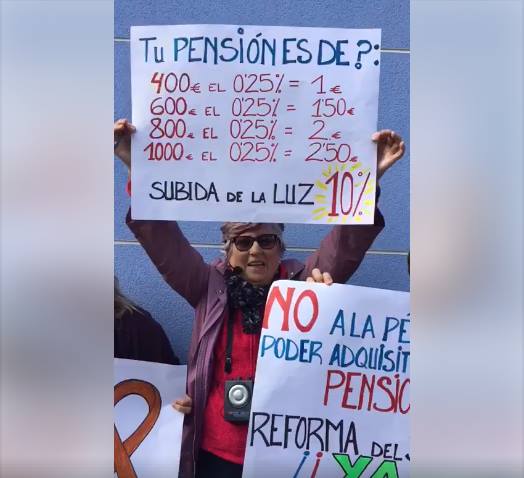 Tu PENSIÓN ES DE ?:
400€ EL 0'25% = 1€
600€ EL 0'25% = 1'50€
800€ EL 0'25% = 2€
1000€ EL 0'25% = 2'50€
SUBIDA DE LA LUZ 10%
NO A LA
PODER
REFORMA DEL
¡¡ YA